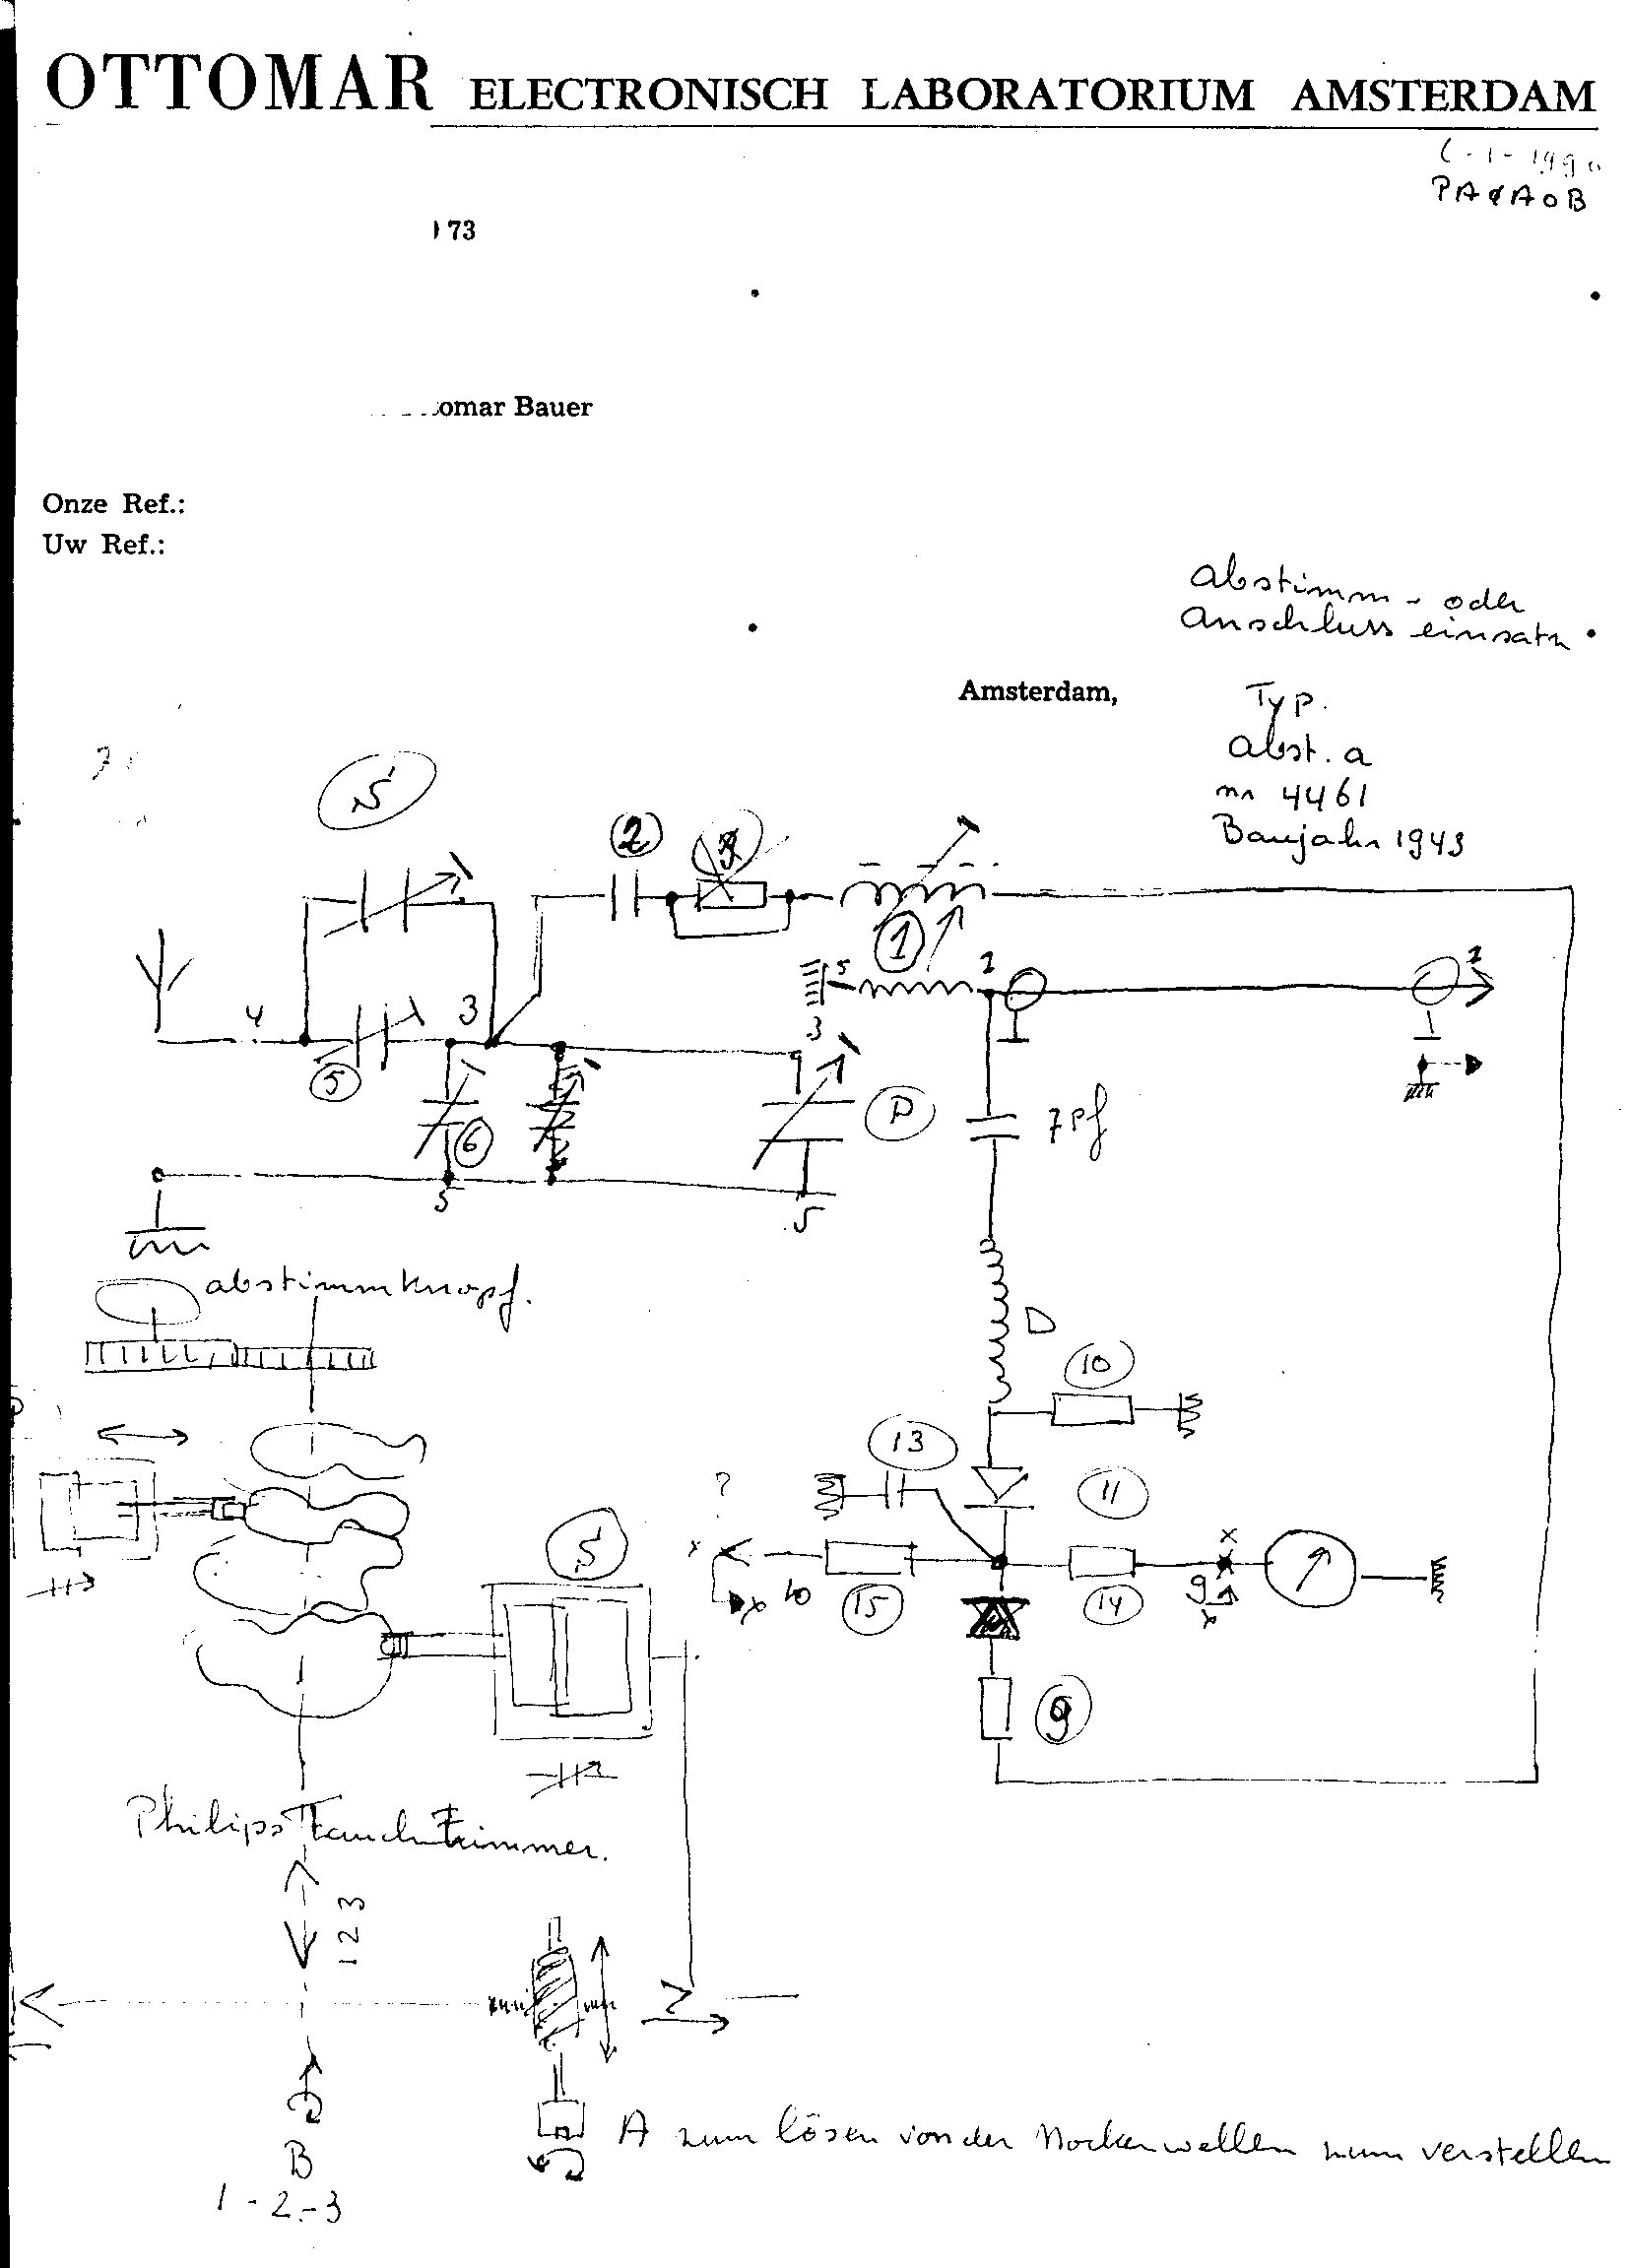 OTTOMAR ELECTRONISCH LABORATORIUM AMSTERDAM
PAØAOB
73
omar Bauer
Onze Ref.:
Uw Ref.:
abstimm - oder
Anschluss einsatz
Amsterdam,
Typ.
abst. a
nr 4461
Baujahr 1943
5
2
1
5
1
1
4
3
3
5
6
P
7 pf
5
5
abstimmknopf.
D
10
13
?
11
5
x
x
10
15
14
9
x
x
9
Philips Tauch Trimmer.
1 2 3
B
A zum lösen von der Nockenwellen zum verstellen
1 - 2 - 3